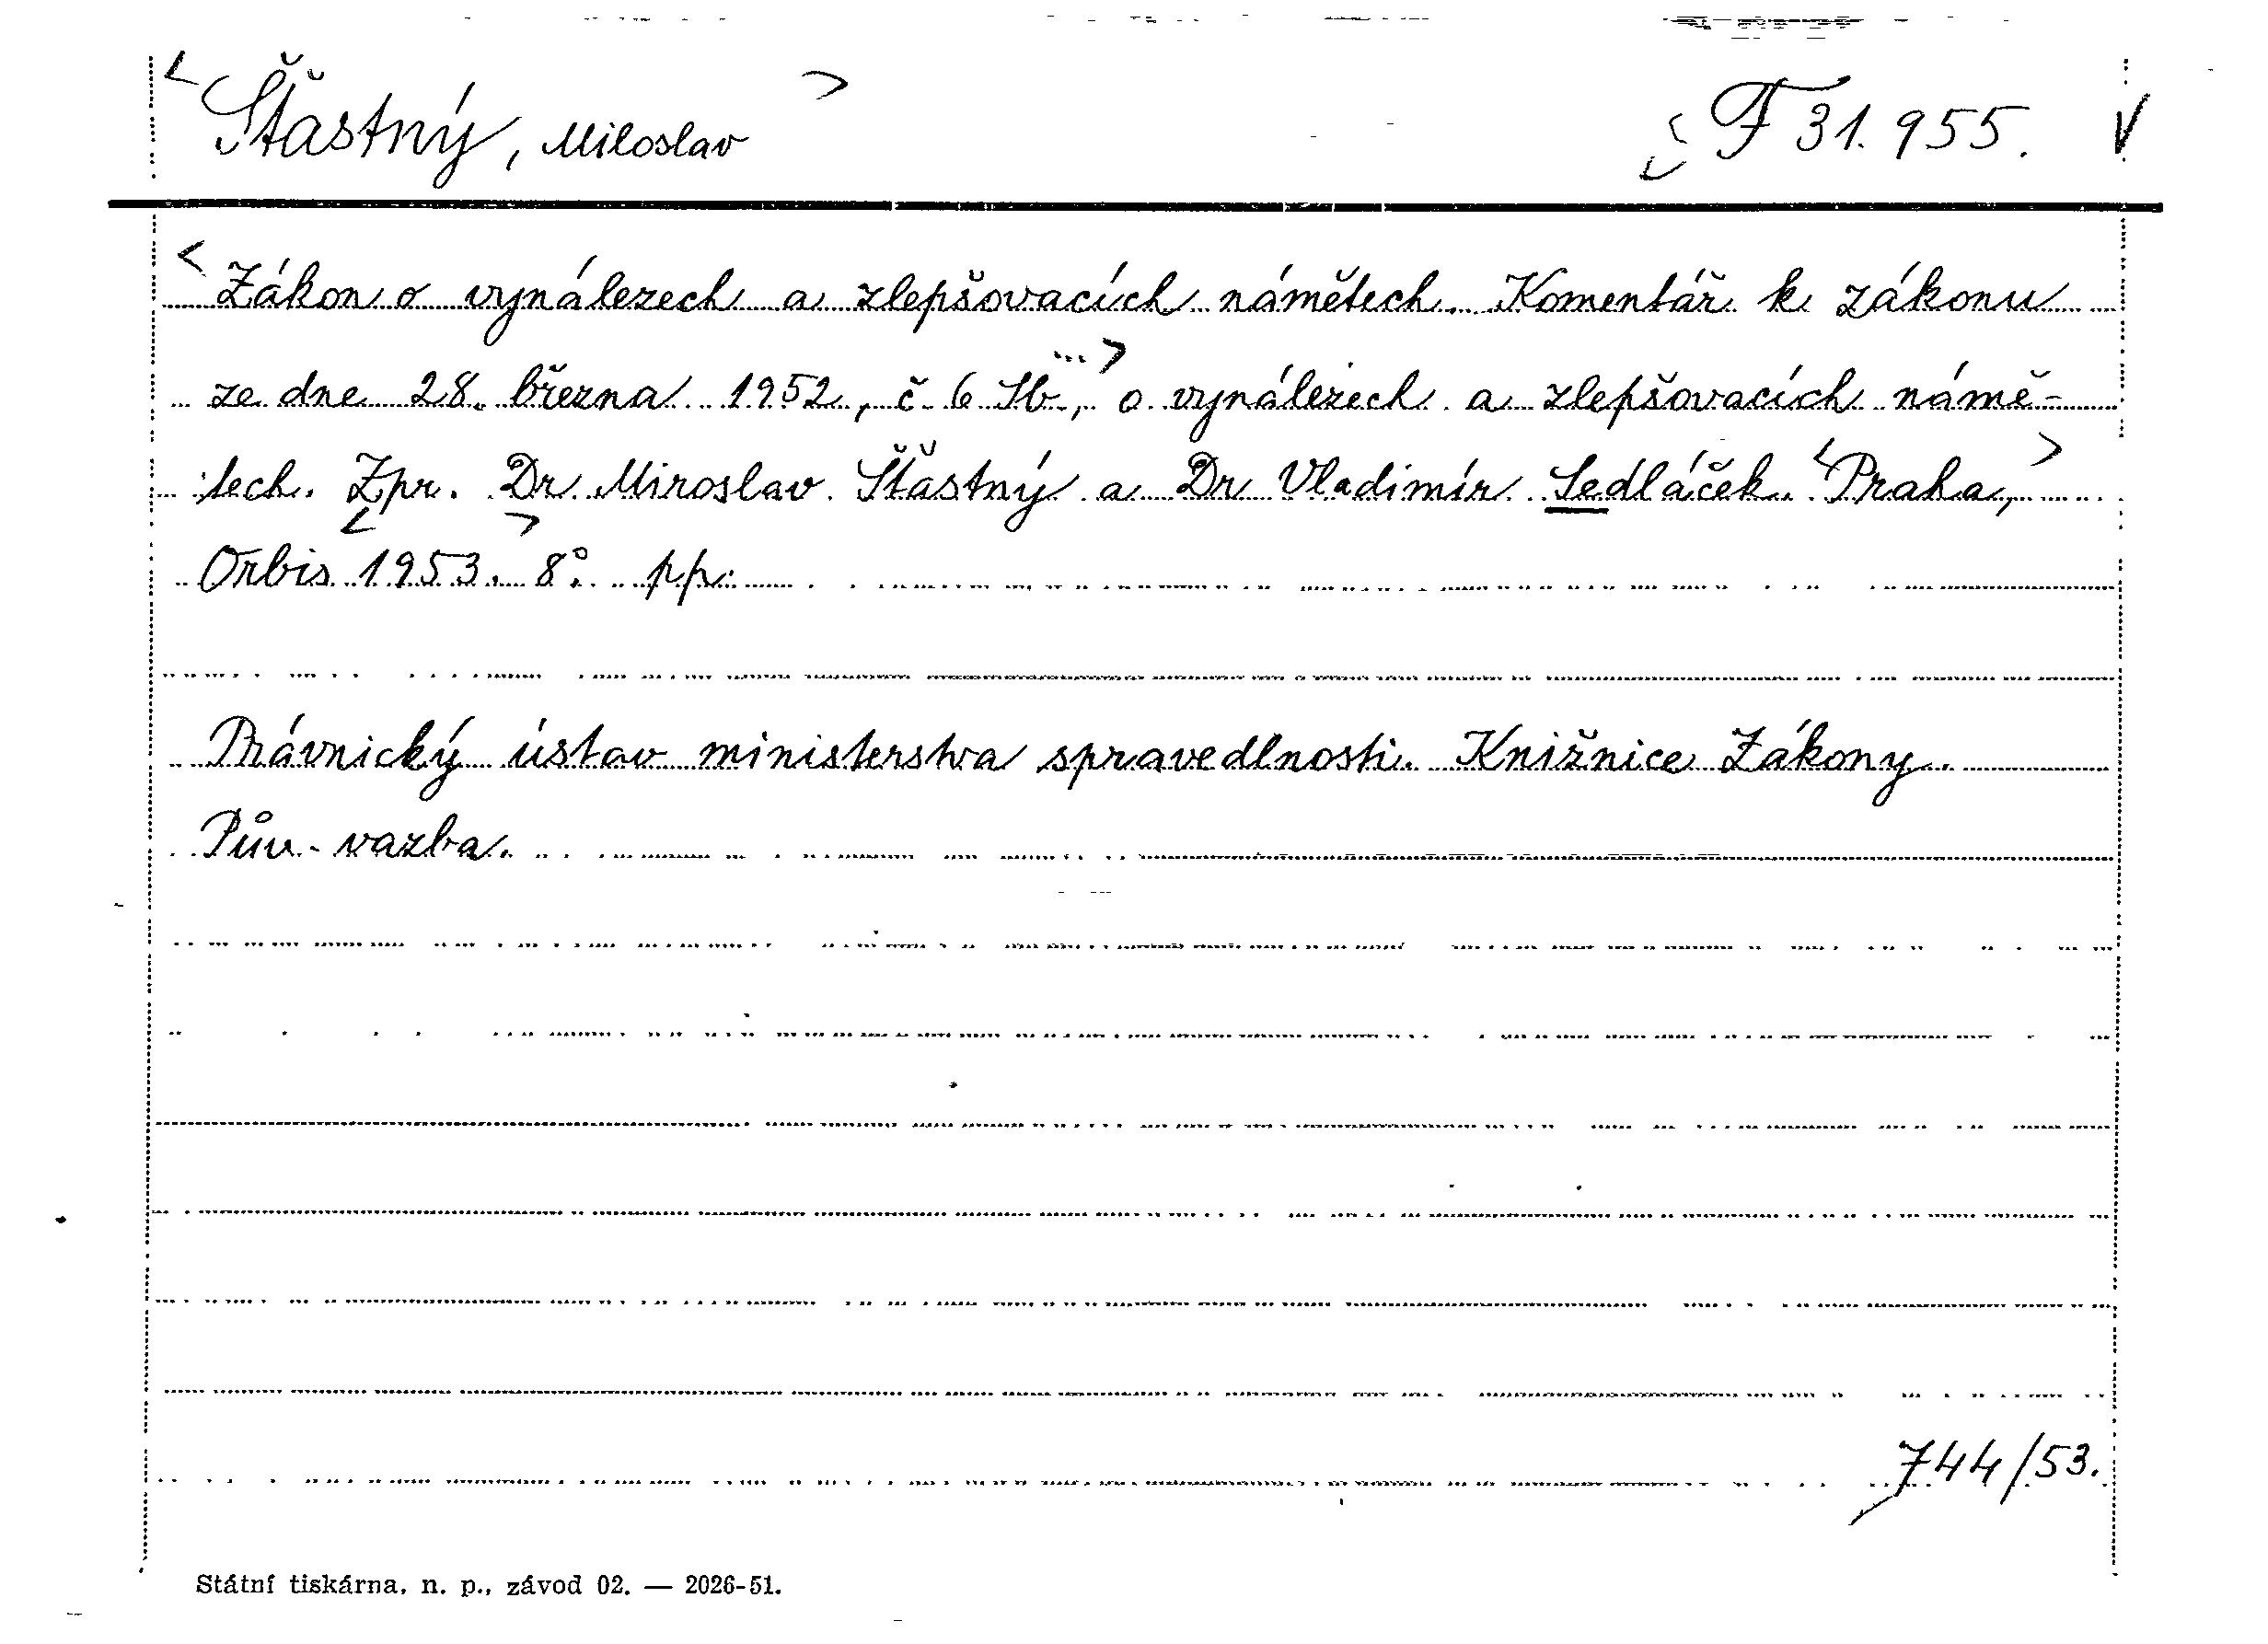 < Šťastný, Miloslav > F 31.955. V
< Zákon o vynálezech a zlepšovacích námětech. Komentář k zákonu
ze dne 28. března 1952, č. 6 Sb., ...> o vynálezech a zlepšovacích námě-
tech. Zpr. Dr. Miroslav Šťastný a Dr Vladimír Sedláček. < Praha, >
Orbis < 1953. > 8°. pp.
Právnický ústav ministerstva spravedlnosti. Knižnice Zákony.
Pův. vazba.
744/53.
Státní tiskárna, n. p., závod 02. — 2026-51.